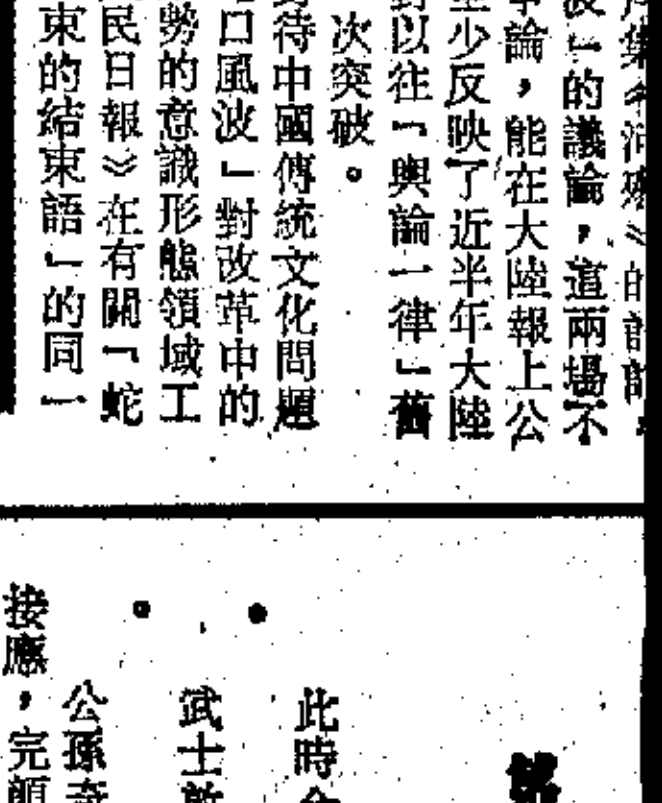 集《河殤》的
」的議論，這兩場不
論，能在大陸報上公
少反映了近半年大陸
以往「輿論一律」舊
次突破。
待中國傳統文化問題
口風波」對改革中的
勢的意識形態領域工
民日報》在有關「蛇
束的結束語」的同一
此時
武士敦
公孫奇
接應，完顏